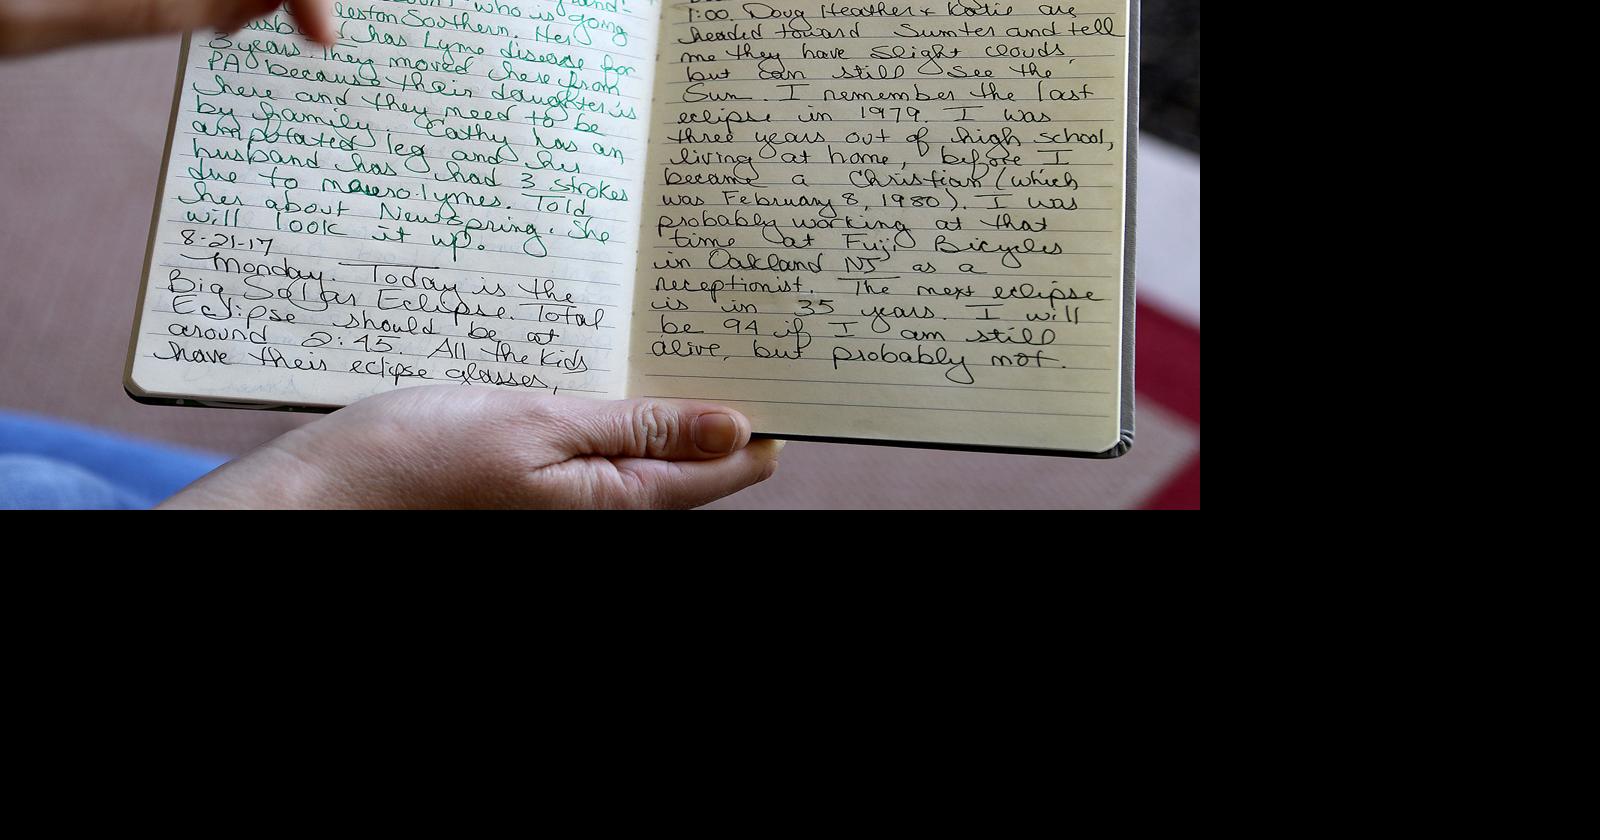 who is going
Southern. Her
husband has Lyme disease for
3 years. They moved here from
PA because their daughter is
here and they need to be
by family. Cathy has an
amputated leg and her
husband has had 3 strokes
due to lymes. Told
her about Newspring. She
will look it up.
8-21-17
Monday. Today is the
Big Solar Eclipse. Total
Eclipse should be at
around 2:45. All the kids
have their eclipse glasses,
1:00. Doug Heather + Katie are
headed toward Sumter and tell
me they have slight clouds,
but can still see the
Sun. I remember the last
eclipse in 1979. I was
three years out of high school,
living at home, before I
became a Christian (which
was February 8, 1980). I was
probably working at that
time at Fuji Bicycles
in Oakland NJ as a
receptionist. The next eclipse
is in 35 years. I will
be 94 if I am still
alive, but probably not.